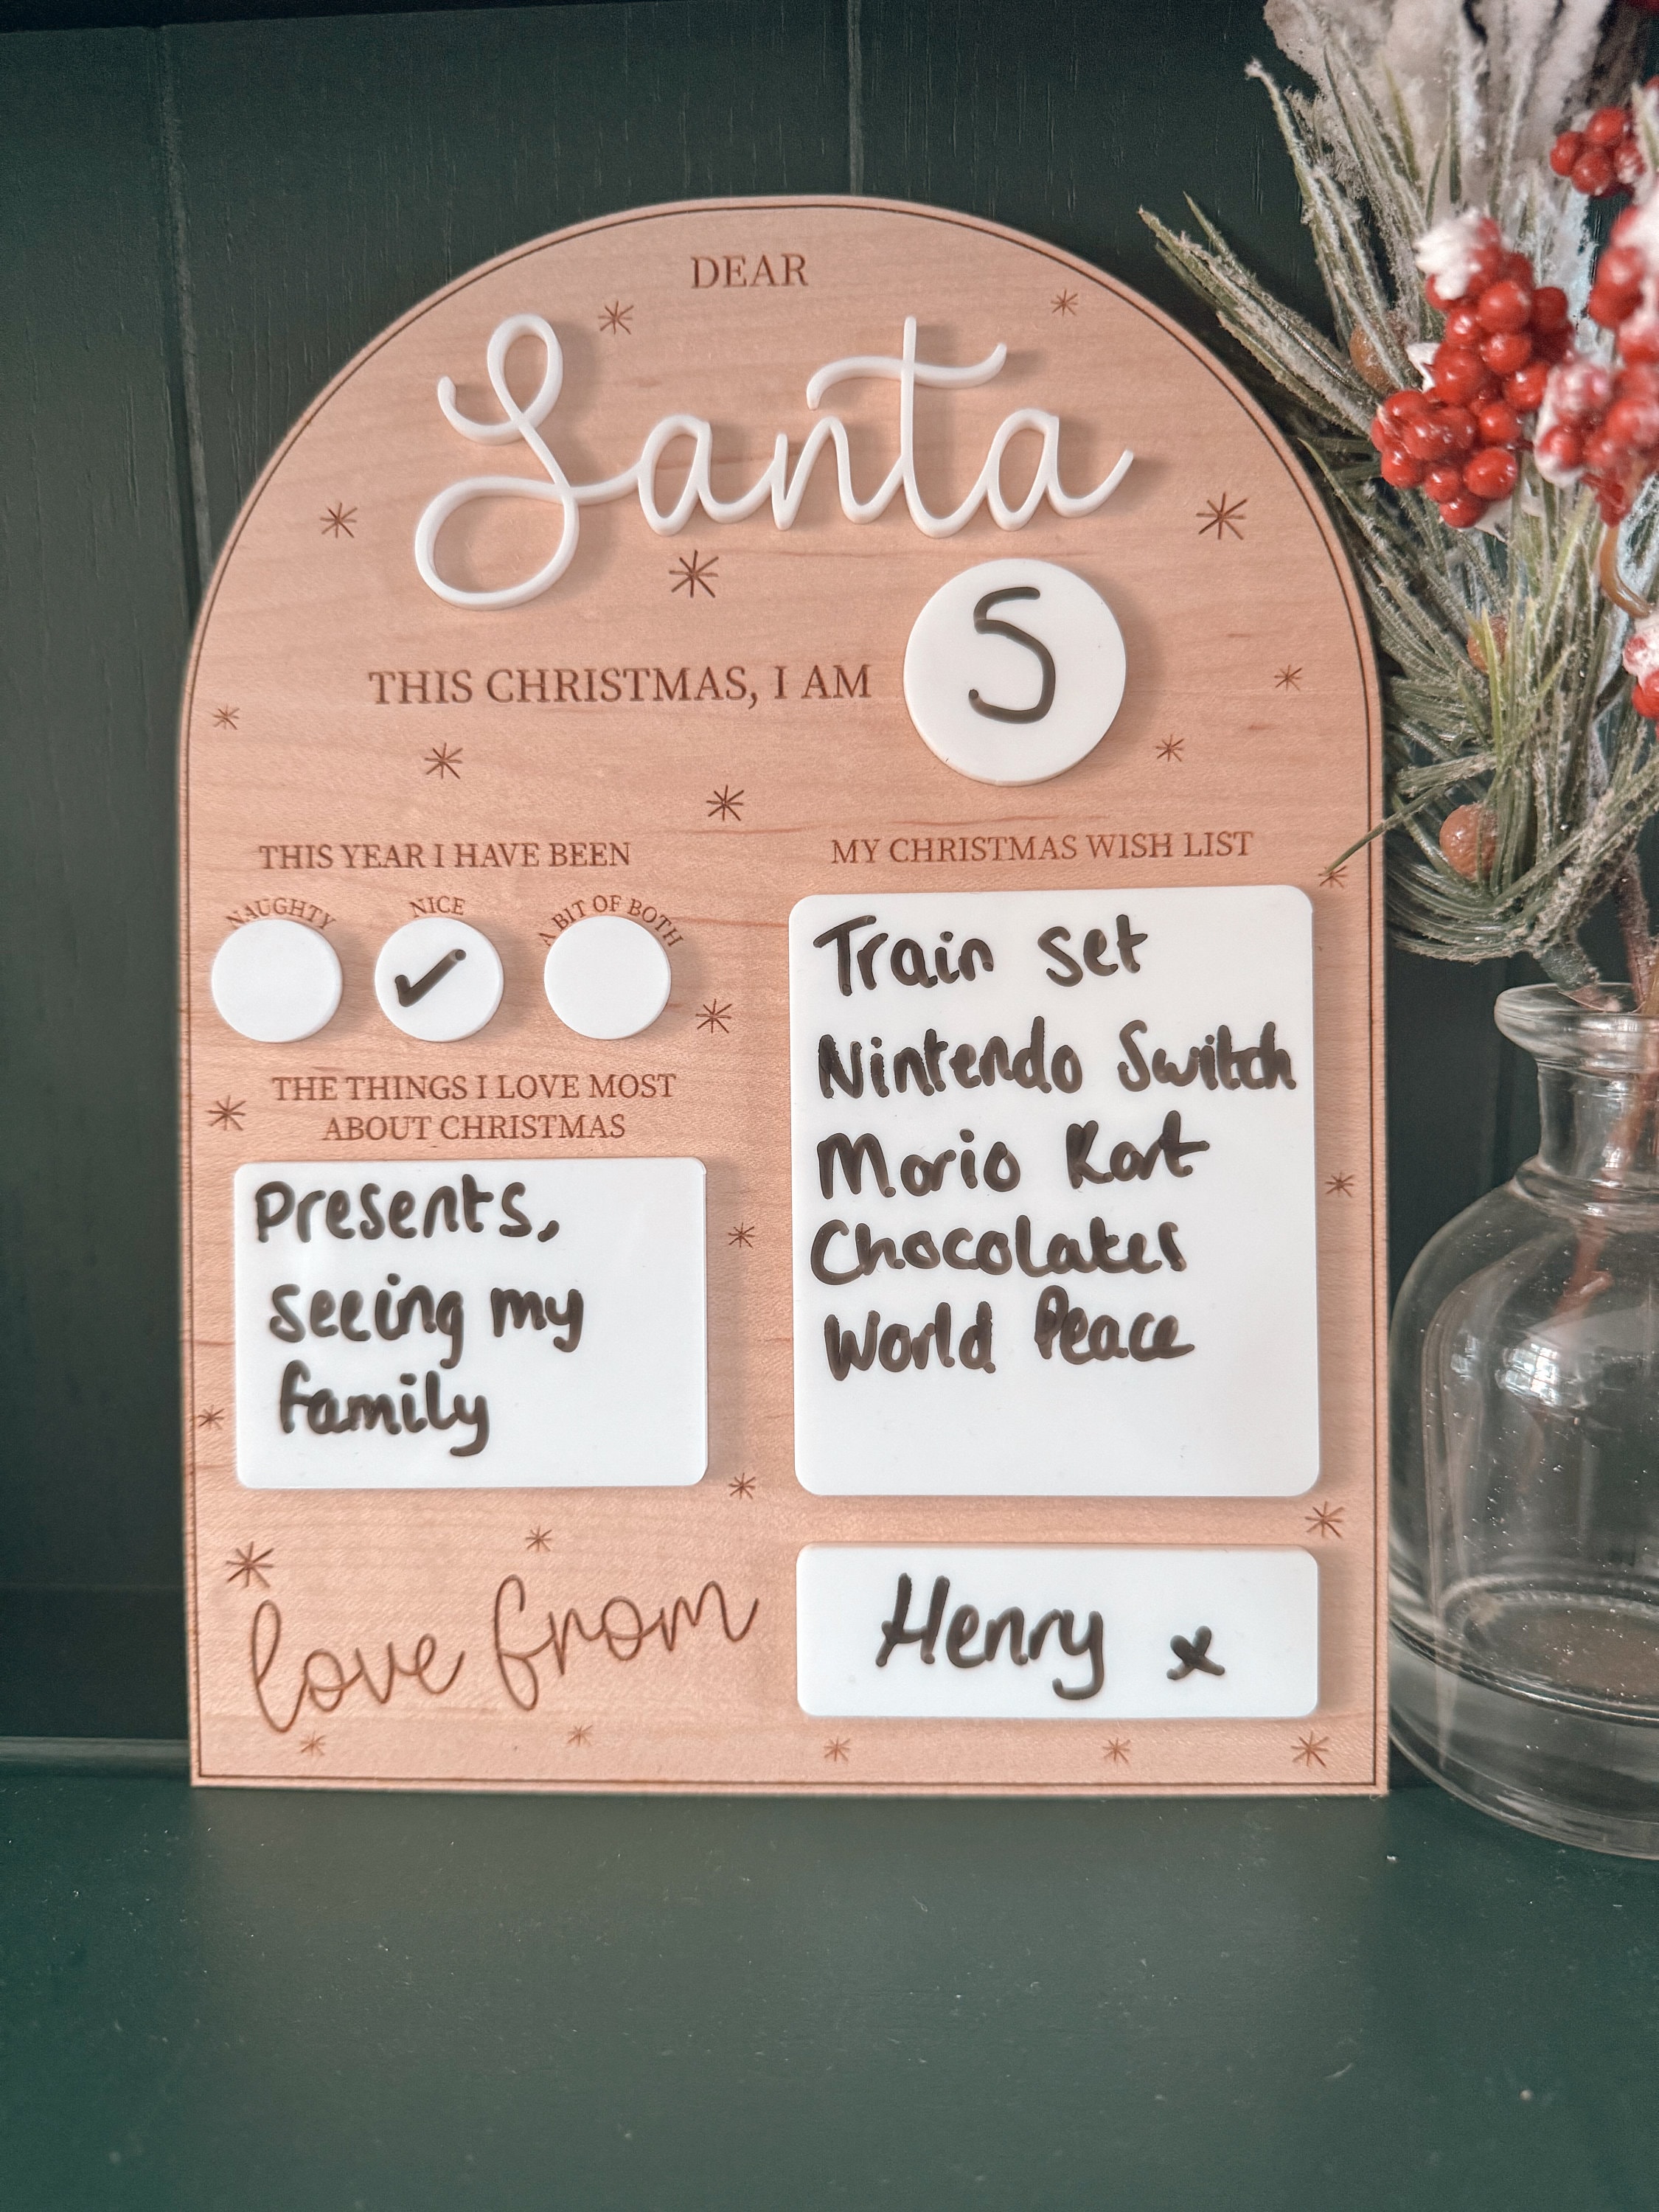 DEAR
Santa
THIS CHRISTMAS, I AM 5
THIS YEAR I HAVE BEEN
NAUGHTY NICE A BIT OF BOTH
✓
THE THINGS I LOVE MOST
ABOUT CHRISTMAS
Presents,
seeing my
family
MY CHRISTMAS WISH LIST
Train set
Nintendo Switch
Mario Kart
Chocolates
World Peace
love from
Henry x